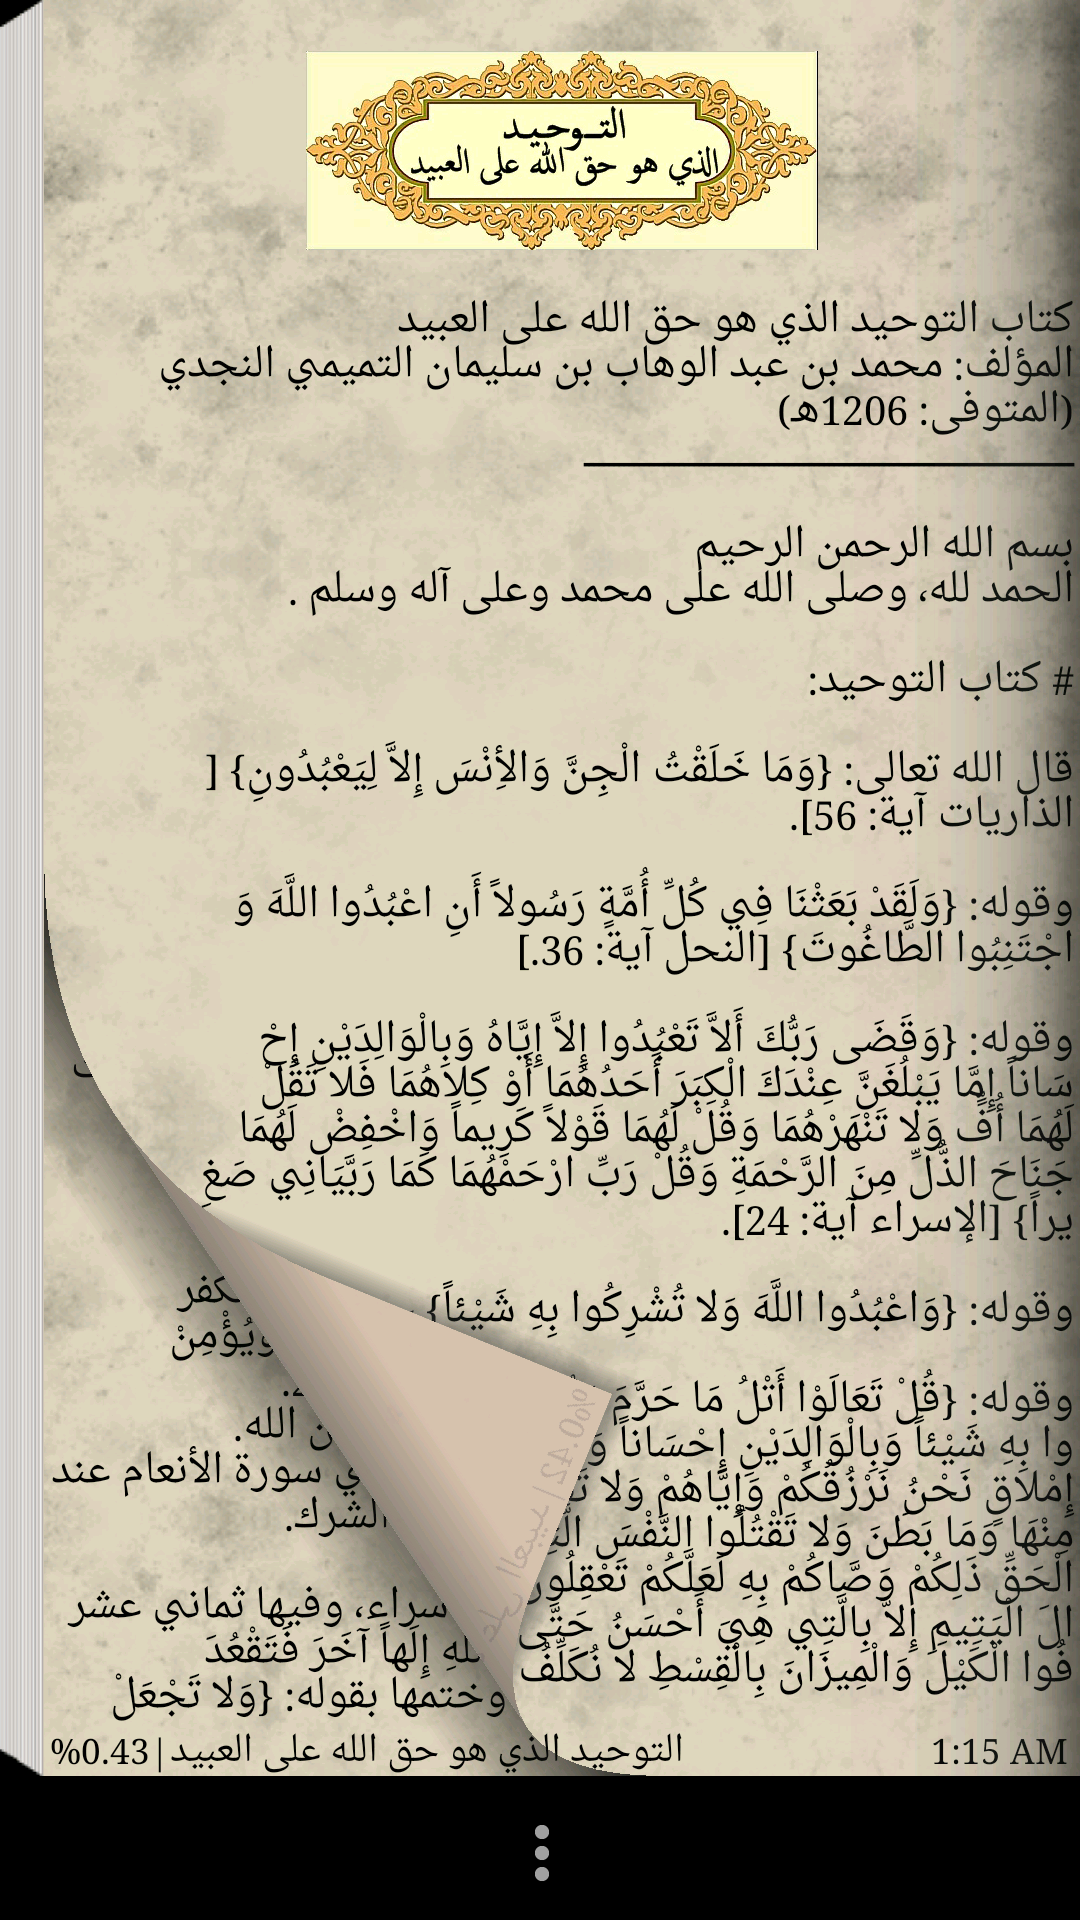 التوحيد
الذي هو حق الله على العبيد
كتاب التوحيد الذي هو حق الله على العبيد
المؤلف: محمد بن عبد الوهاب بن سليمان التميمي النجدي
(المتوفى: 1206هـ)
بسم الله الرحمن الرحيم
الحمد لله، وصلى الله على محمد وعلى آله وسلم .
# كتاب التوحيد:
قال الله تعالى: {وَمَا خَلَقْتُ الْجِنَّ وَالأِنْسَ إِلاَّ لِيَعْبُدُونِ} [
الذاريات آية: 56].
وقوله: {وَلَقَدْ بَعَثْنَا فِي كُلِّ أُمَّةٍ رَسُولاً أَنِ اعْبُدُوا اللَّهَ وَ
اجْتَنِبُوا الطَّاغُوتَ} [النحل آية: 36.]
وقوله: {وَقَضَى رَبُّكَ أَلاَّ تَعْبُدُوا إِلاَّ إِيَّاهُ وَبِالْوَالِدَيْنِ إِحْ
سَاناً إِمَّا يَبْلُغَنَّ عِنْدَكَ الْكِبَرَ أَحَدُهُمَا أَوْ كِلاهُمَا فَلا تَقُلْ
لَهُمَا أُفٍّ وَلا تَنْهَرْهُمَا وَقُلْ لَهُمَا قَوْلاً كَرِيماً وَاخْفِضْ لَهُمَا
جَنَاحَ الذُّلِّ مِنَ الرَّحْمَةِ وَقُلْ رَبِّ ارْحَمْهُمَا كَمَا رَبَّيَانِي صَغِ
يراً} [الإسراء آية: 24].
وقوله: {وَاعْبُدُوا اللَّهَ وَلا تُشْرِكُوا بِهِ شَيْئاً}
وقوله: {قُلْ تَعَالَوْا أَتْلُ مَا حَرَّمَ
وا بِهِ شَيْئاً وَبِالْوَالِدَيْنِ إِحْسَاناً
إِمْلاقٍ نَحْنُ نَرْزُقُكُمْ وَإِيَّاهُمْ وَلا
مِنْهَا وَمَا بَطَنَ وَلا تَقْتُلُوا النَّفْسَ
الْحَقِّ ذَلِكُمْ وَصَّاكُمْ بِهِ لَعَلَّكُمْ
الَ الْيَتِيمِ إِلاَّ بِالَّتِي هِيَ أَحْسَنُ حَتَّى
فُوا الْكَيْلَ وَالْمِيزَانَ بِالْقِسْطِ لا نُكَلِّفُ
وَيُؤْمِنْ
الله.
سورة الأنعام عند
الشرك.
وفيها ثماني عشر
إِلَهاً آخَرَ فَتَقْعُدَ
وختمها بقوله: {وَلا تَجْعَلْ
1:15 AM
التوحيد الذي هو حق الله على العبيد|0.43%